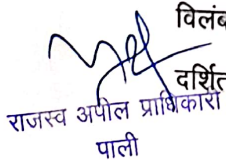 विलंब
दर्शित
राजस्व अपील प्राधिकारी
पाली